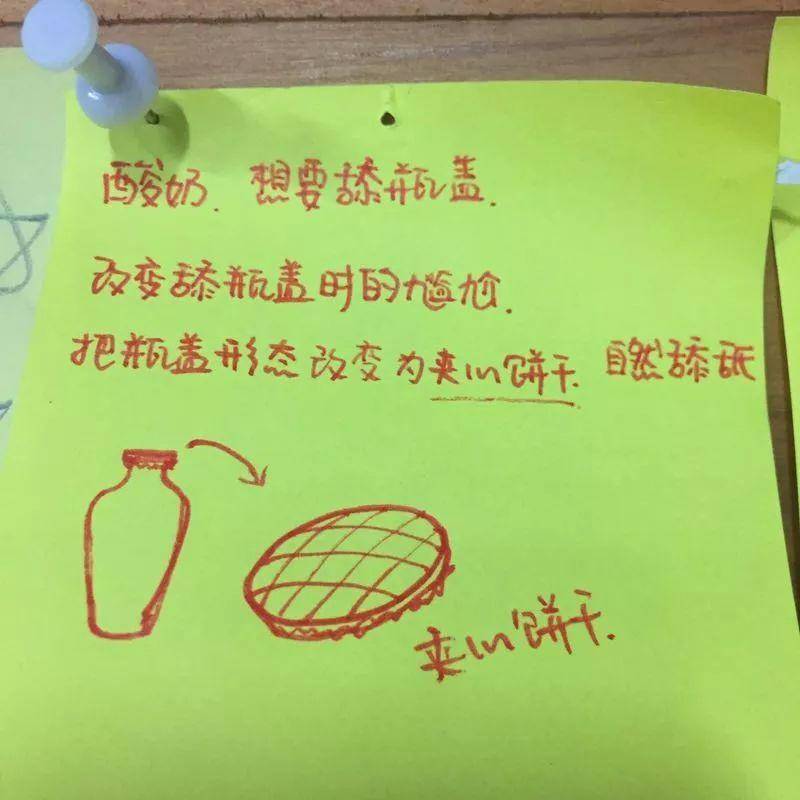 酸奶. 想要舔瓶盖.
改变舔瓶盖时的尴尬.
把瓶盖形态改变为夹心饼干. 自然舔舐
夹心饼干.